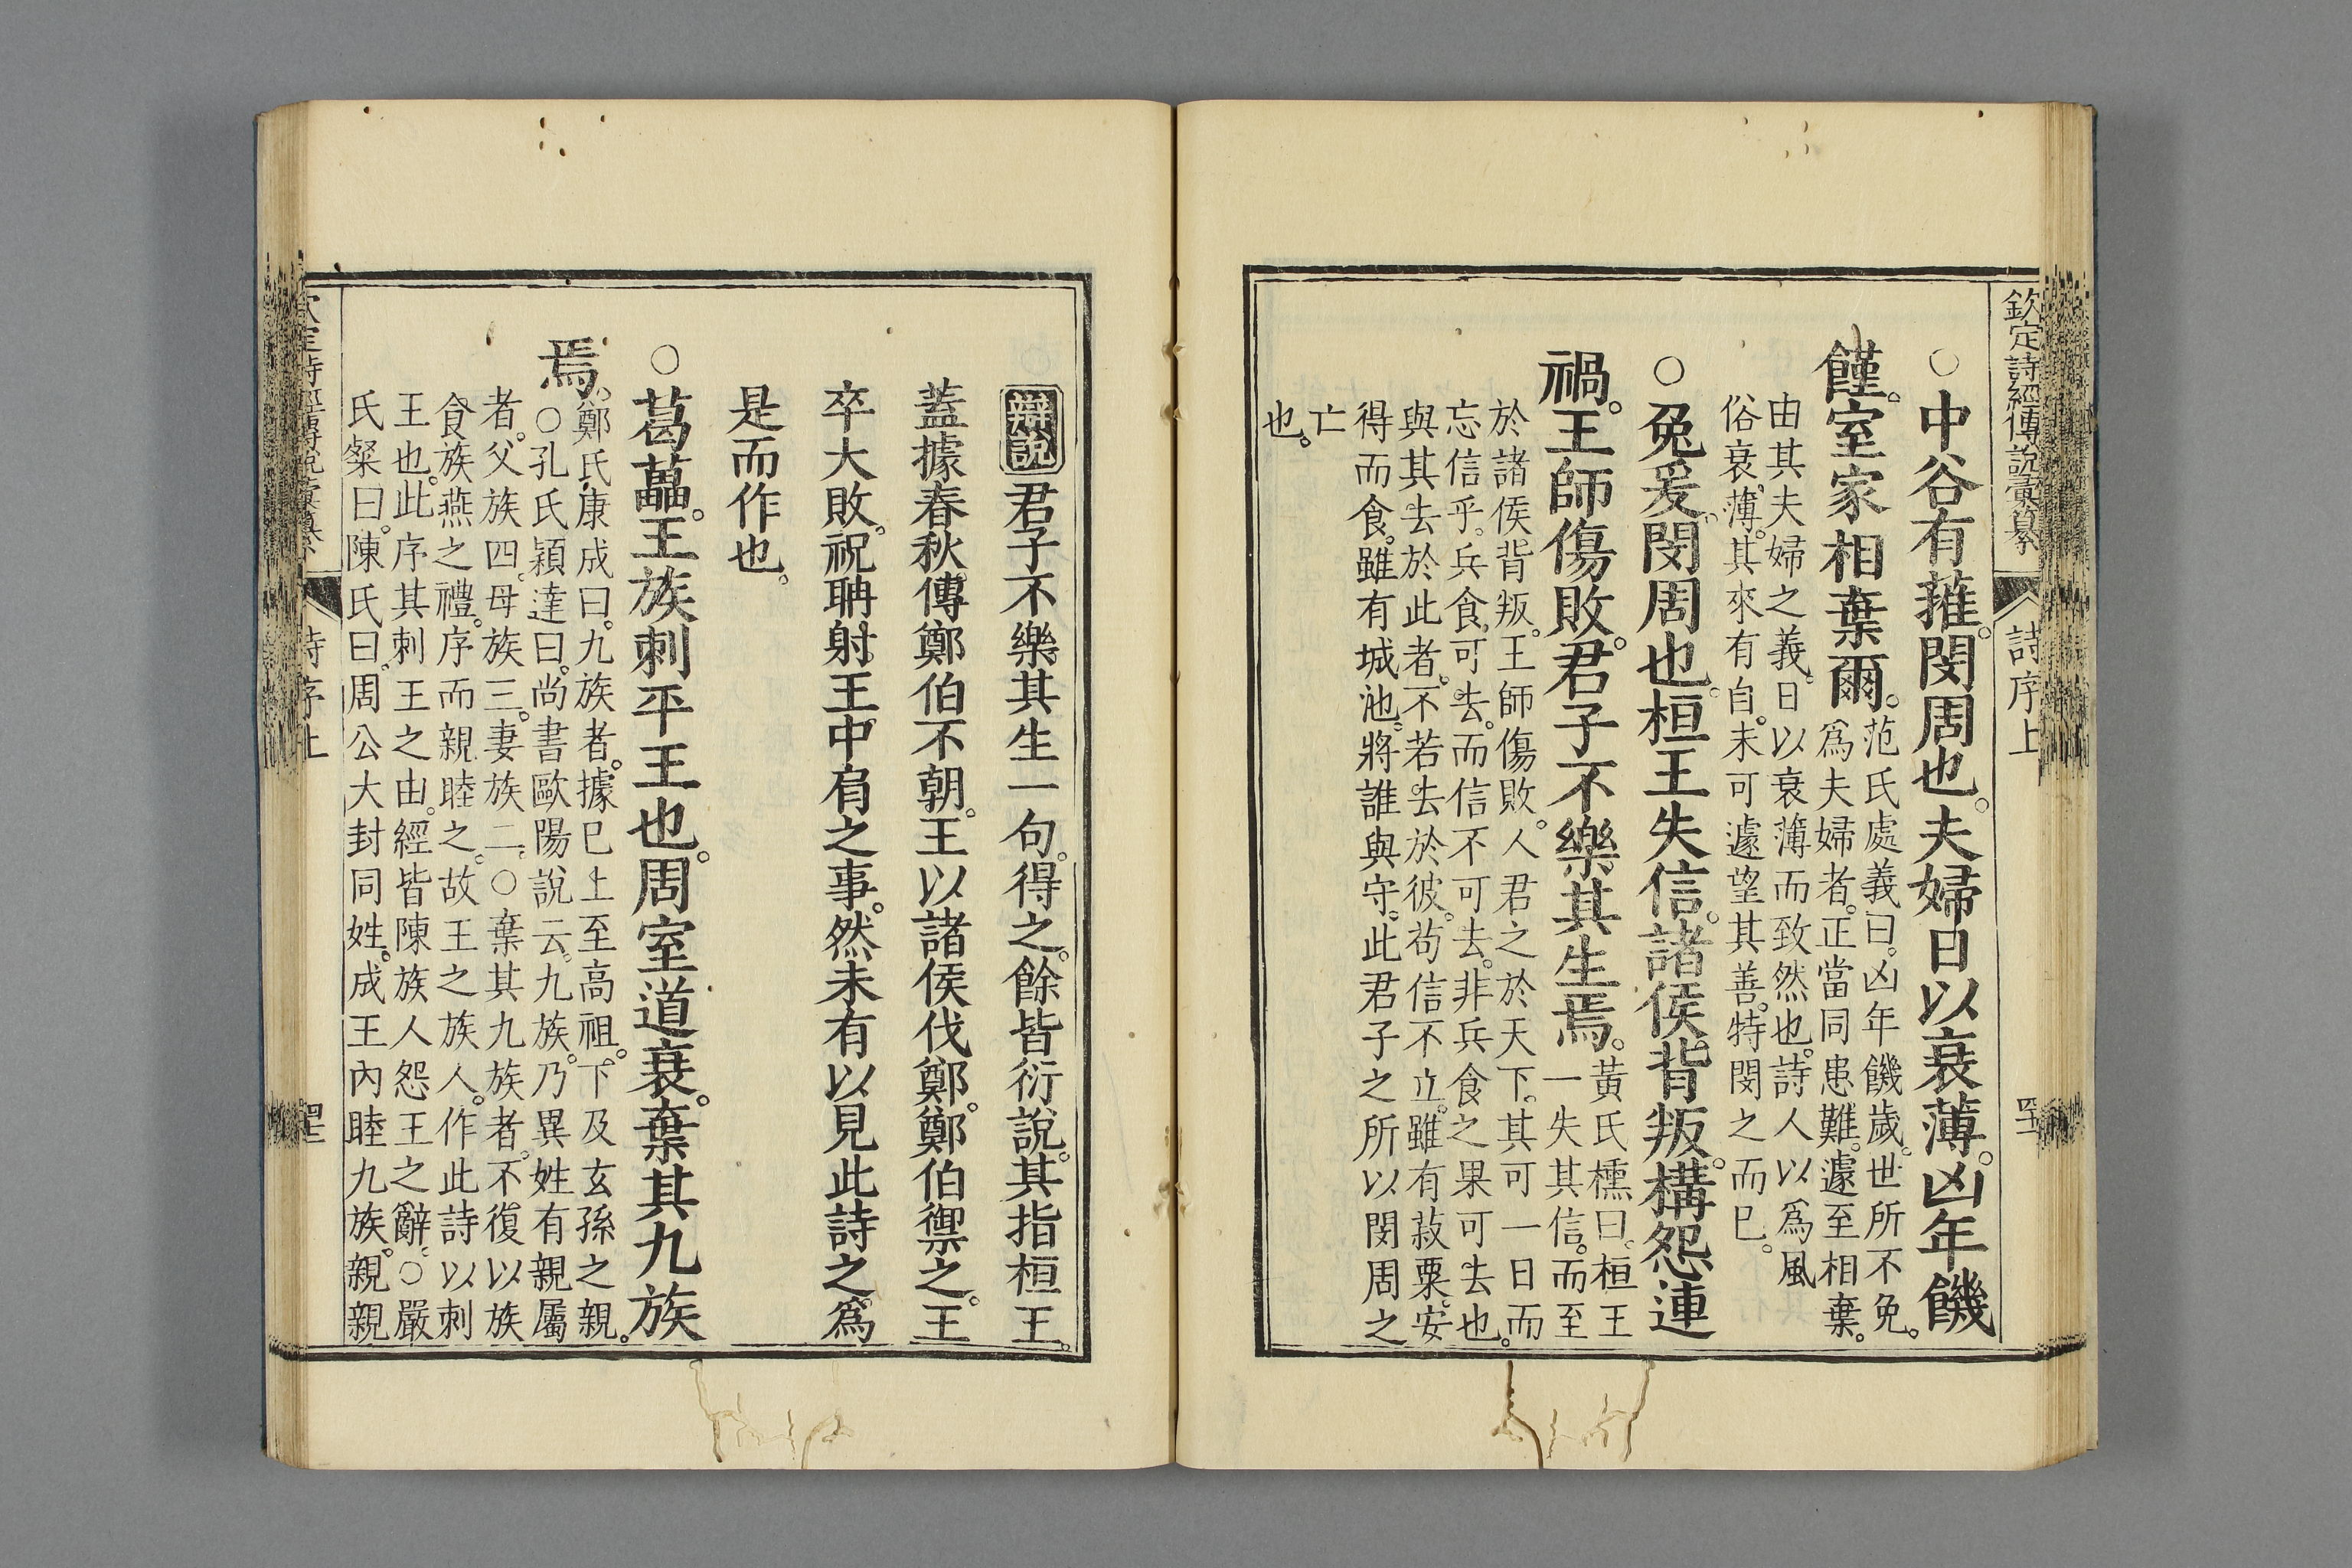 欽定詩經傳說彙纂
詩序上
○中谷有蓷。閔周也。夫婦日以衰薄。凶年饑
饉。室家相棄爾。
范氏處義曰。凶年饑歲。世所不免。
爲夫婦者。正當同患難。遽至相棄。
由其夫婦之義。日以衰薄而致然也。詩人以爲風
俗衰薄。其來有自。未可遽望其善。特閔之而已。
○兔爰。閔周也。桓王失信。諸侯背叛。構怨連
禍。王師傷敗。君子不樂其生焉。
黃氏櫄曰。桓王
一失其信。而至
於諸侯背叛。王師傷敗。人君之於天下。其可一日而
忘信乎。兵食可去。而信不可去。非兵食之果可去也。
與其去於此者。不若去於彼。苟信不立。雖有菽粟。安
得而食。雖有城池。將誰與守。此君子之所以閔周之
亡
也。
辯說
君子不樂其生一句。得之。餘皆衍說。其指桓王。
蓋據春秋傳鄭伯不朝。王以諸侯伐鄭。鄭伯禦之。王
卒大敗。祝聃射王中肩之事。然未有以見此詩之爲
是而作也。
○葛藟。王族刺平王也。周室道衰。棄其九族
焉。
鄭氏康成曰。九族者。據已上至高祖。下及玄孫之親。
○孔氏穎達曰。尚書歐陽說云。九族。乃異姓有親屬
者。父族四。母族三。妻族二。○棄其九族者。不復以族
食族燕之禮。序而親睦之。故王之族人。作此詩以刺
王也。此序其刺王之由。經皆陳族人怨王之辭。○嚴
氏粲曰。陳氏曰。周公大封同姓。成王內睦九族。親親
詩序上